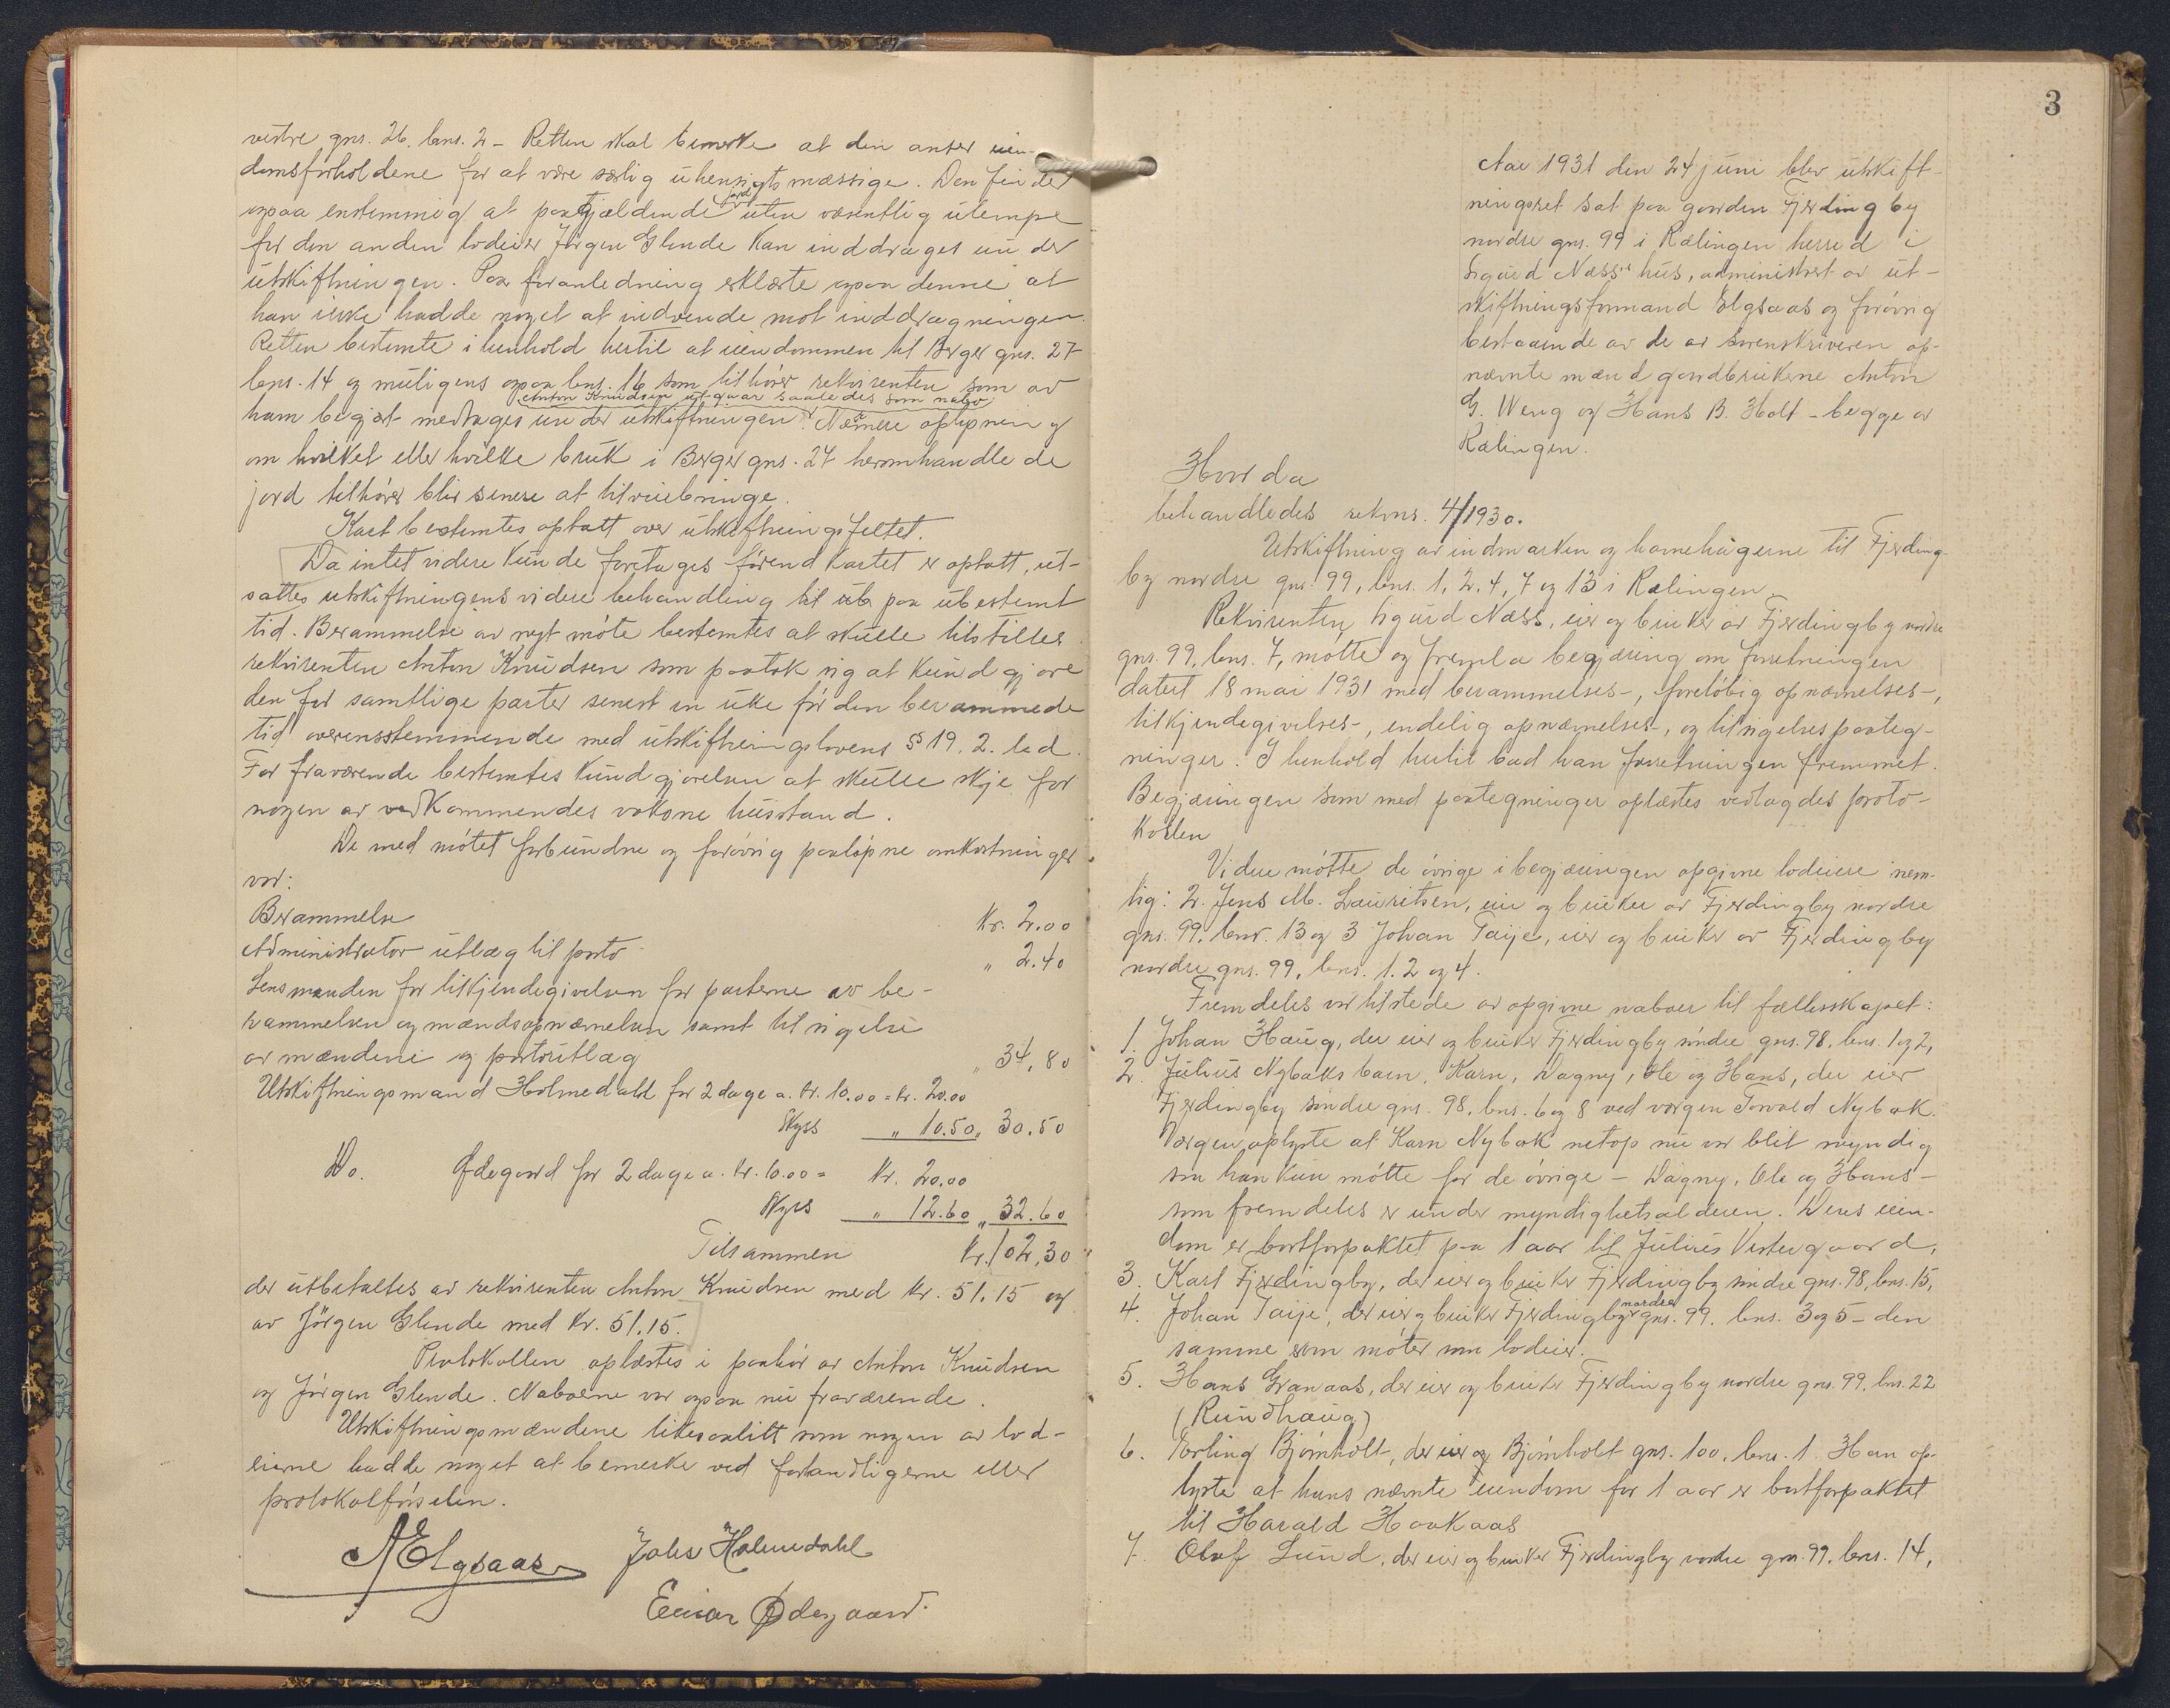 vestre gnr. 26. bnr. 2 - Retten skal bemerke at den anser eien-
domsforholdene for at være særlig uhensigtsmæssige. Den finder
ogsaa enstemmig at paagjældende jord uten væsentlig ulempe
for den anden lodeier Jörgen Glende kan inddrages under
utskiftningen. Paa foranledning erklærte ogsaa denne at
han ikke hadde noget at indvende mot inddragningen.
Retten bestemte i henhold hertil at eiendommen til Berger gnr. 27
bnr. 14 og muligens ogsaa bnr. 16 som tilhörer rekvirenten som av
Anton Knudsen utgaar saaledes som nabo
ham begjært medtages under utskiftningen. Nærmere oplysning
om hvilket eller hvilke bruk i Berger gnr. 27 heromhandlede
jord tilhörer blir senere at tilveiebringe.
Kart bestemtes optatt over utskiftningsfeltet.
Da intet videre kunde foretages förend kartet er optatt, ut-
sattes utskiftningens videre behandling til paa ubestemt
tid. Berammelse av nyt möte bestemtes at skulle tilstilles
rekvirenten Anton Knudsen som paatok sig at kundgjøre
den for samtlige parter senest en uke för den berammede
tid overensstemmende med utskiftningslovens § 19. 2. led.
For fraværende bestemtes kundgjørelsen at skulle skje for
nogen av vedkommendes voksne husstand.
De med mötet forbundne og forövrig paalöpne omkostninger
var:
Berammelse Kr. 2.00
Administrator utlæg til porto " 2.40
Lensmanden for tilkjendegivelsen for parterne av be-
rammelsen og mændsopnævnelsen samt tilsigelse
av mændene og portoutlæg " 34,80
Utskiftningsmand Holmedahl for 2 dage a. kr. 10.00 = kr. 20.00
Skyss " 10.50 " 30.50
Do. Ødegaard for 2 dage a. kr. 10.00 = kr. 20.00
Skyss " 12.60 " 32.60
Tilsammen Kr. 102,30
der utbetaltes av rekvirenten Anton Knudsen med kr. 51.15 og
av Jörgen Glende med kr. 51.15.
Protokollen oplæstes i paahör av Anton Knudsen
og Jörgen Glende. Naboerne var ogsaa nu fraværende.
Utskiftningsmændene likesaalitt som nogen av lod-
eierne hadde noget at bemerke ved forhandligerne eller
protokolförselen.
A Elgsaas Johs Holmedahl
Einar Ødegaard.
3
Aar 1931 den 24 juni blev utskift-
ningsret sat paa gaarden Fjerdingby
nordre gnr. 99 i Rælingen herred i
Sigurd Næss's hus, administrert av ut-
skiftningsformand Elgsaas og forövrig
bestaaende av de av sorenskriveren op-
nævnte mænd gaardbrukerne Anton
G. Weng og Hans B. Holt - begge av
Rælingen.
Hvorda
behandledes rekvns. 4/1930.
Utskiftning av indmarken og havnehagerne til Fjerding-
by nordre gnr. 99, bnr. 1, 2, 4, 7 og 13 i Rælingen
Rekvirenten Sigurd Næss, eier og bruker av Fjerdingby nordre
gnr. 99, bnr. 7, mötte og fremla begjæring om forretningen
datert 18 mai 1931 med berammelses-, foreløbig opnævnelses-,
tilkjendegivelses-, endelig opnævnelses-, og tilsigelsespaateg-
ninger. I henhold hertil bad han forretningen fremmet.
Begjæringen som med paategninger oplæstes vedlagdes proto-
kollen
Videre mötte de övrige i begjæringen opgivne lodeiere nem-
lig: 2. Jens M. Lauritsen, eier og bruker av Fjerdingby nordre
gnr. 99, bnr. 13 og 3 Johan Taije, eier og bruker av Fjerdingby
nordre gnr. 99, bnr. 1. 2 og 4.
Fremdeles var tilstede av opgivne naboer til fællesskapet:
1. Johan Haug, der eier og bruker Fjerdingby söndre gnr. 98, bnr. 1 og 2,
2. Julius Nybaks barn, Karn, Dagny, Ole og Hans, der eier
Fjerdingby söndre gnr. 98, bnr. 6 og 8 ved vergen Torvald Nybak.
Vergen oplyste at Karn Nybak netop nu var blit myndig
saa han kun mötte for de övrige - Dagny, Ole og Hans -
som fremdeles er under myndighetsalderen. Deres eien-
dom er bortforpaktet paa 1 aar til Julius Vestergaard,
3. Karl Fjerdingby, der eier og bruker Fjerdingby söndre gnr. 98, bnr. 15,
4. Johan Taije, der eier og bruker Fjerdingby nordre gnr. 99. bnr. 3 og 5 - den
samme som möter som lodeier.
5. Hans Granaas, der eier og bruker Fjerdingby nordre gnr. 99, bnr. 22
(Rundhaug)
6. Torling Björnholt, der eier og Björnholt gnr. 100, bnr. 1. Han op-
lyste at hans nævnte eiendom for 1 aar er bortforpaktet
til Harald Haakaas
7. Olaf Lund, der eier og bruker Fjerdingby nordre gnr. 99, bnr. 14,